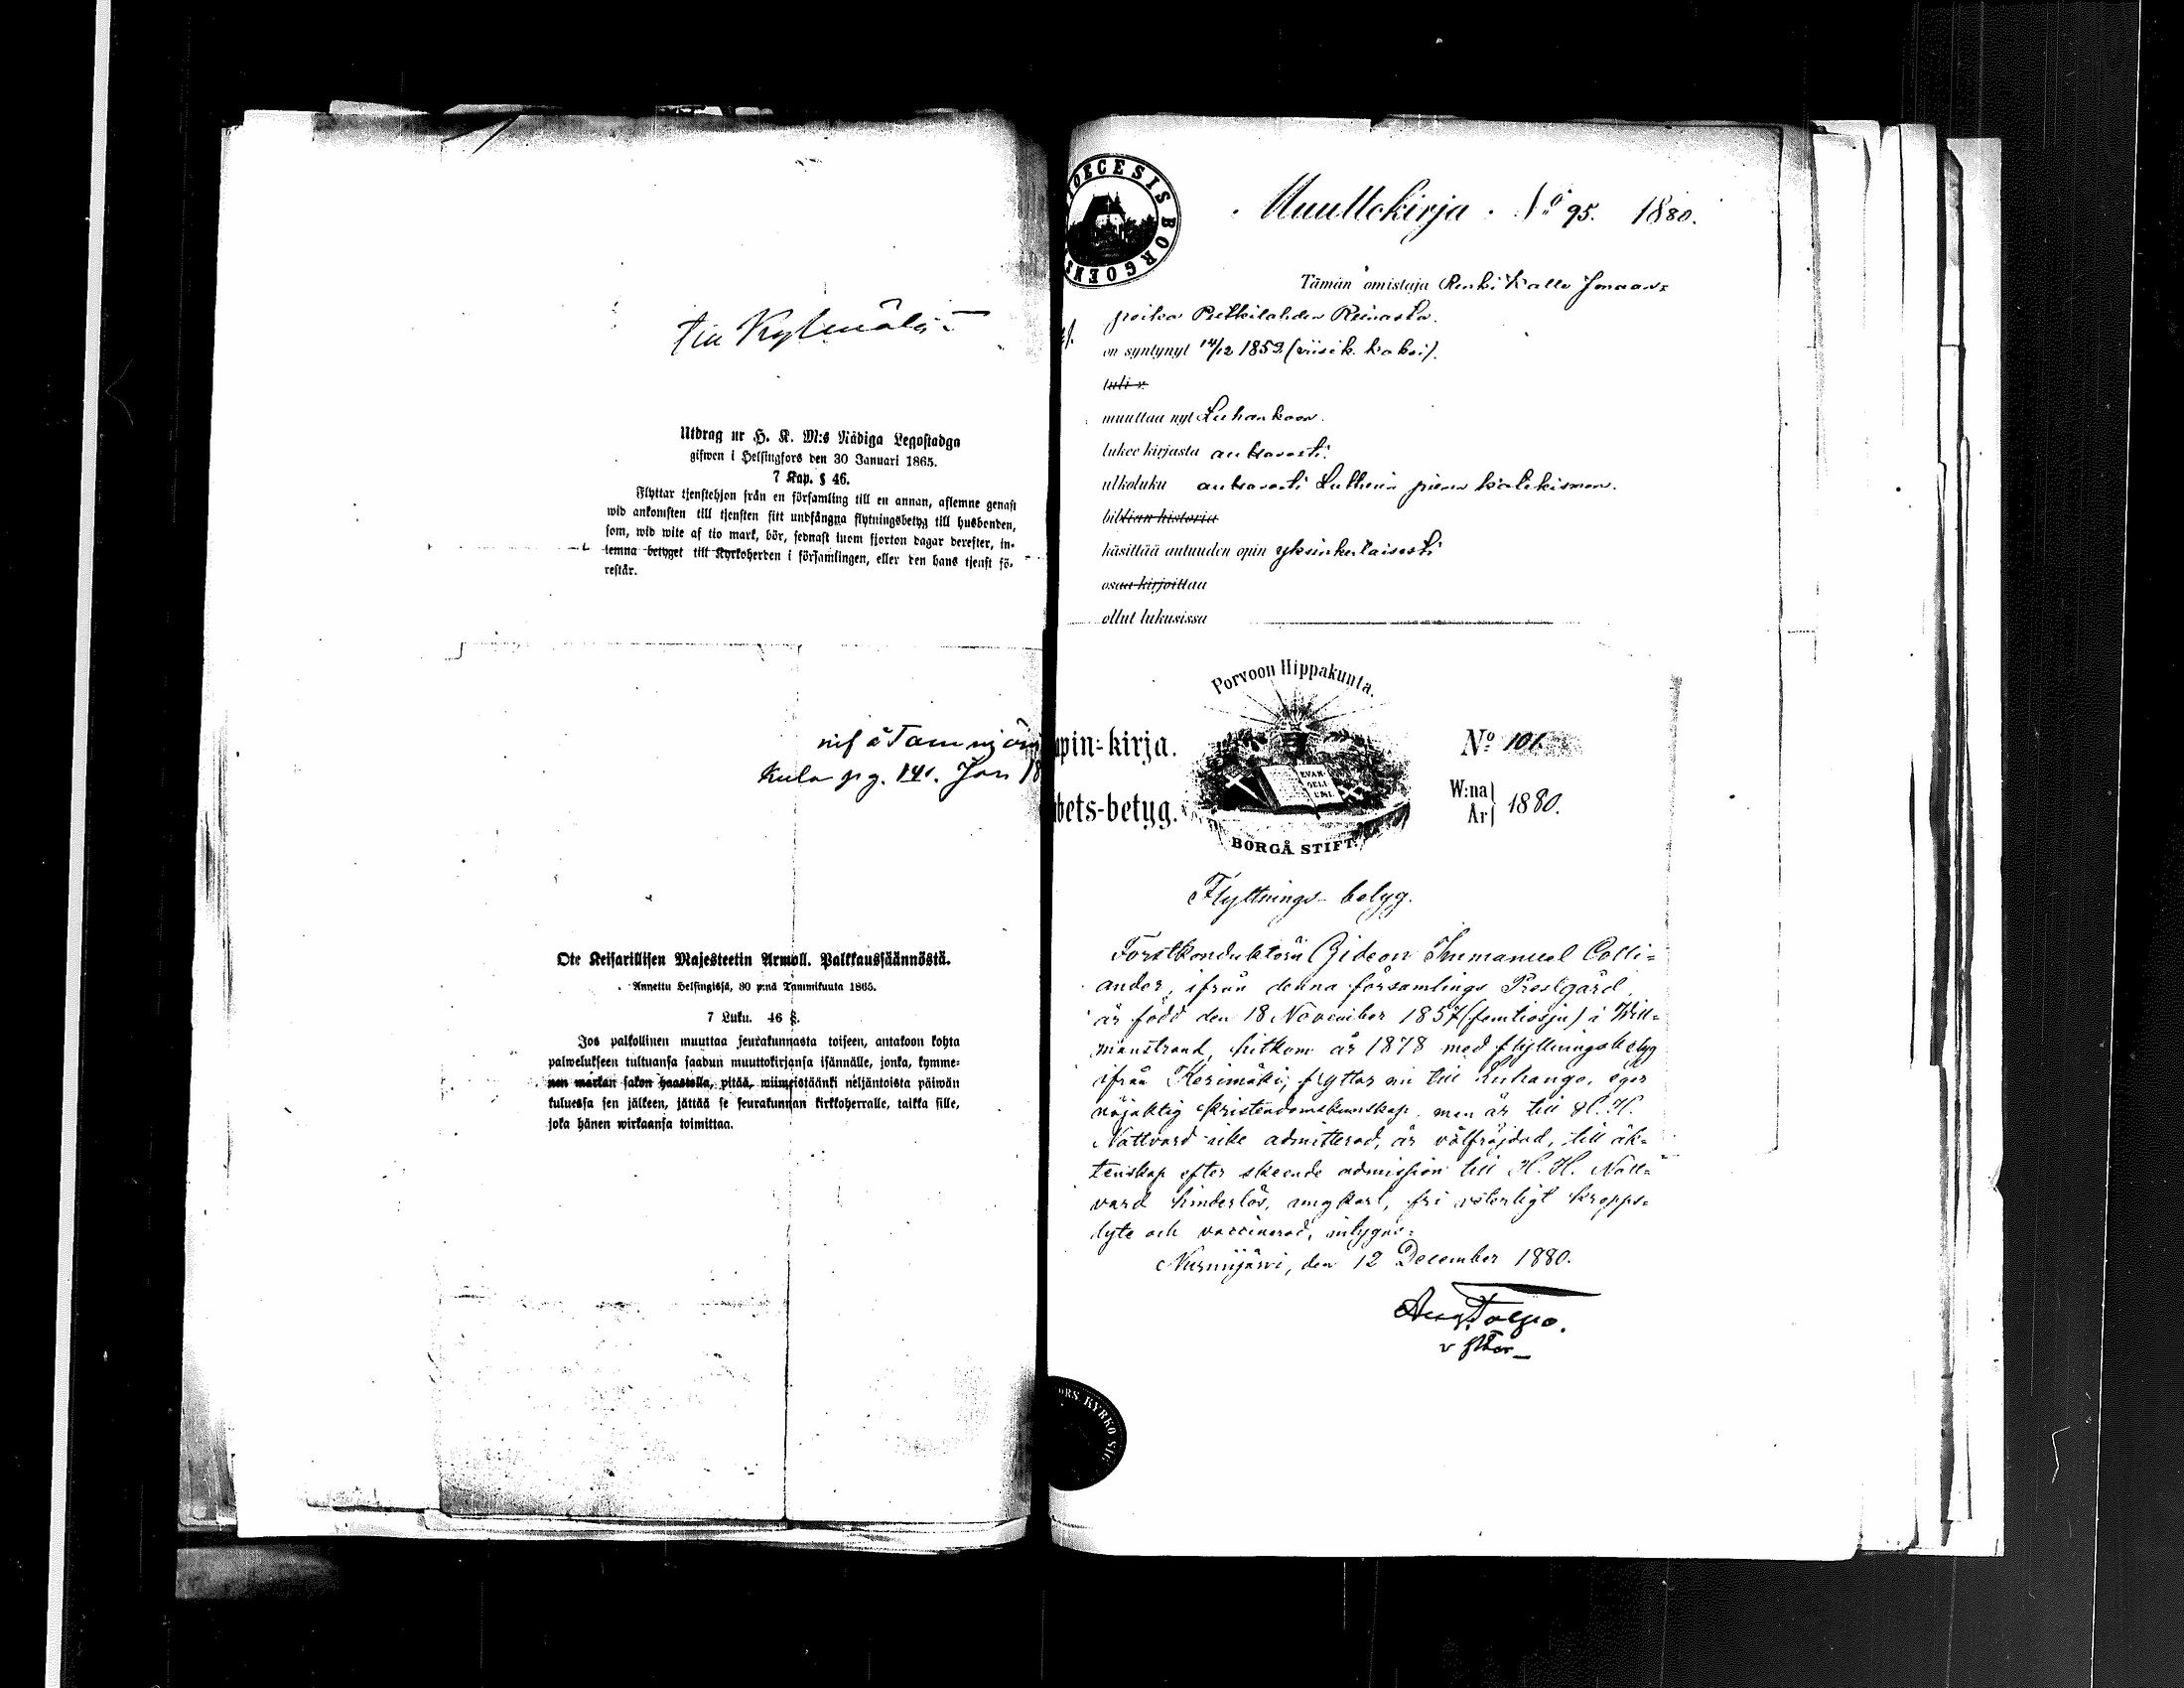 till Kylmälä
Utdrag ur H. K. M:s Nådiga Legostadga
gifwen i Helsingfors den 30 Januari 1865.
7 Kap. § 46.
Flyttar tjenstehjon från en församling till en annan, aflemne genast
wid ankomsten till tjensten sitt undfångna flytningsbetyg till husbonden,
som, wid wite af tio mark, bör, sednast inom fjorton dagar derefter, in-
lemna betyget till Kyrkoherden i församlingen, eller den hans tjenst fö-
restår.
Kula pg. 141. Jan 18
Ote Keisarillisen Majesteetin Armoll. Palkkaussäännöstä.
Annettu Helsingissä, 30 p:nä Tammikuuta 1865.
7 Luku. 46 §.
Jos palkollinen muuttaa seurakunnasta toiseen, antakoon kohta
palwelukseen tultuansa saadun muuttokirjansa isännälle, jonka, kymme-
nen markan sakon haastolla, pitää, wiimeistäänki neljäntoista päiwän
kuluessa sen jälkeen, jättää se seurakunnan kirkkoherralle, taikka sille,
joka hänen wirkaansa toimittaa.
OECESIS BORGOENS
Muuttokirja. No 95. 1880.
Tämän omistaja Renki Kalle Jonaan=
poika Pitkälahden Reinasta.
on syntynyt 14/12 1852 (viisik. kaksi).
tuli v.
muuttaa nyt Luhankaan.
lukee kirjasta auttavasti.
ulkoluku auttavasti Lutherin pienen katekismon.
biblian historia
käsittää autuuden opin yksinkertaisesti
osaa kirjoittaa
ollut lukusissa
Porvoon Hippakunta.
pin=kirja.
No 101.
EVAN-
GELI
UMI.
W:na
År 1880.
bets-betyg.
BORGÅ STIFT.
Flyttnings-betyg.
Forstkonduktörn Gideon Immanuel Colli=
ander, ifrån denna församlings Prestgård,
är född den 18 November 1857 (femtiosju) i Will=
manstrand, hitkom år 1878 med flyttningsbetyg
ifrån Kerimäki, flyttar nu till Luhango, eger
nöjaktig kristendomskunskap, men är till H. H.
Nattvard icke admitterad, är välfräjdad, till äk=
tenskap efter skeende admission till H. H. Natt=
vard hinderlös, ungkarl, fri från veterligt kropps=
lyte och vaccinerad, intygas:
Nurmijärvi, den 12 December 1880.
ORS KYRKO SIG